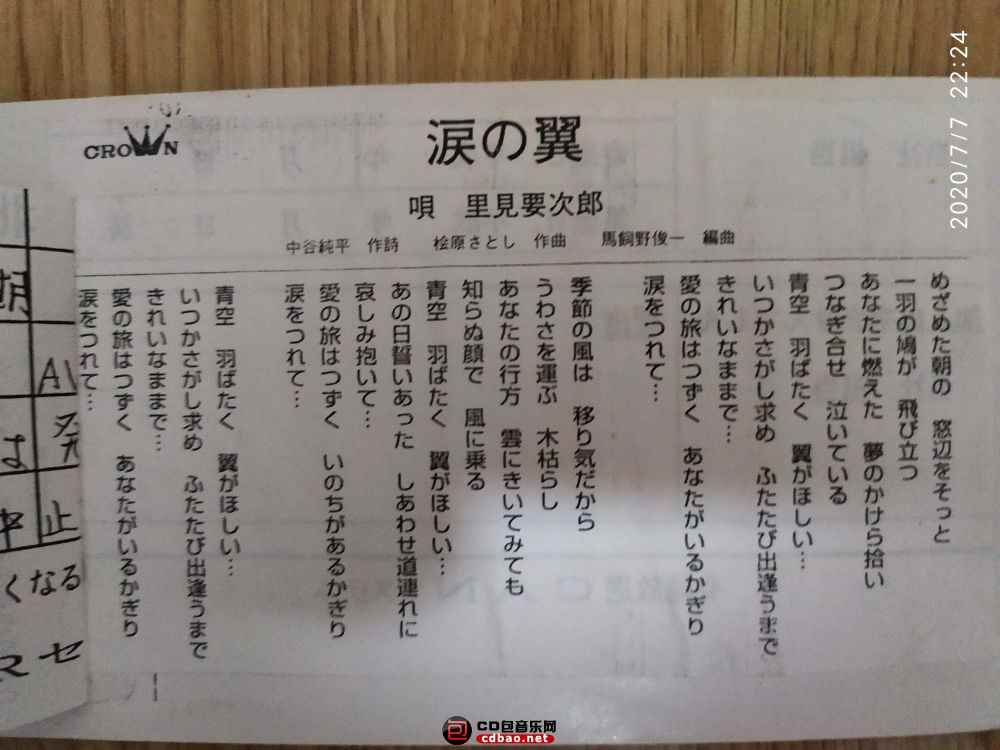 2020/7/7 22:24
CROWN
涙の翼
唄 里見要次郎
中谷純平 作詩 桧原さとし 作曲 馬飼野俊一 編曲
めざめた朝の 窓辺をそっと
一羽の鳩が 飛び立つ
あなたに燃えた 夢のかけら拾い
つなぎ合せ 泣いている
青空 羽ばたく 翼がほしい…
いつかさがし求め ふたたび出逢うまで
きれいなままで…
愛の旅はつずく あなたがいるかぎり
涙をつれて…
季節の風は 移り気だから
うわさを運ぶ 木枯らし
あなたの行方 雲にきいてみても
知らぬ顔で 風に乗る
青空 羽ばたく 翼がほしい…
あの日誓いあった しあわせ道連れに
哀しみ抱いて…
愛の旅はつずく いのちがあるかぎり
涙をつれて…
青空 羽ばたく 翼がほしい…
いつかさがし求め ふたたび出逢うまで
きれいなままで…
愛の旅はつずく あなたがいるかぎり
涙をつれて…
は
中止
くなる
マセ
CD包音乐网
cdbao.net